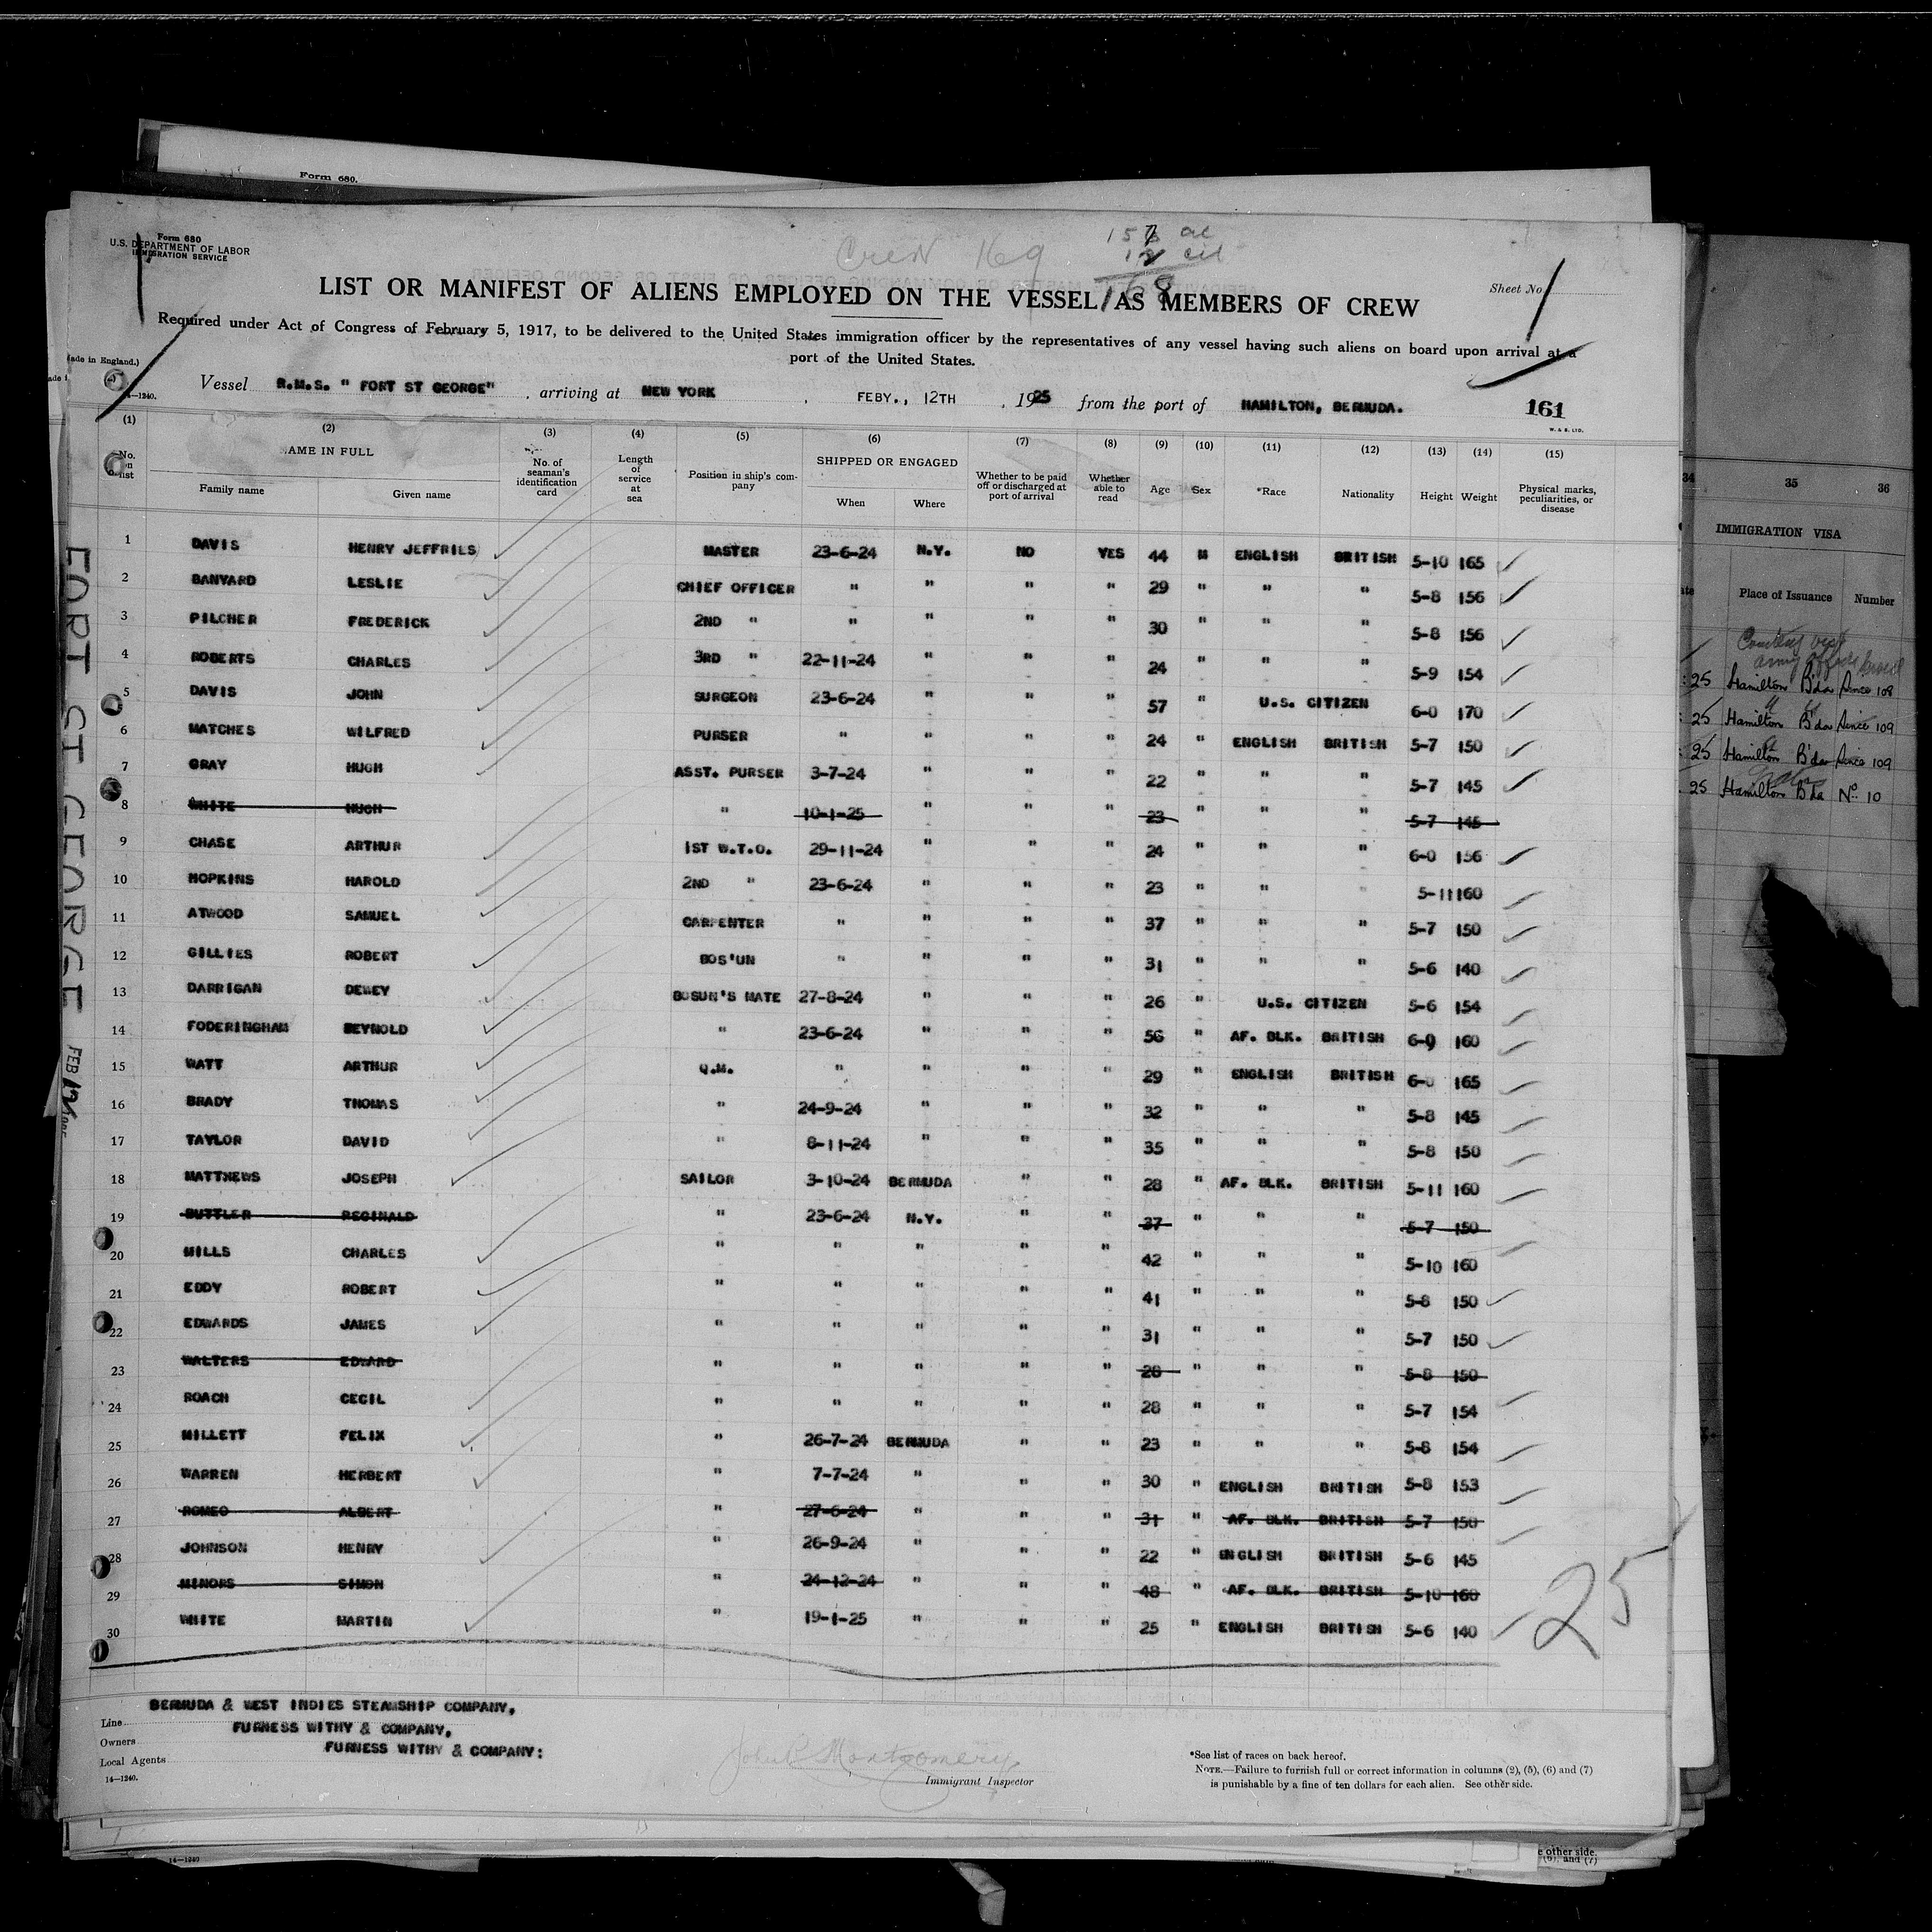 Form 680.
Form 680
U.S. DEPARTMENT OF LABOR
IMMIGRATION SERVICE
Crew 169
157 al
12 cit
168
LIST OR MANIFEST OF ALIENS EMPLOYED ON THE VESSEL AS MEMBERS OF CREW
Sheet No. 1
Required under Act of Congress of February 5, 1917, to be delivered to the United States immigration officer by the representatives of any vessel having such aliens on board upon arrival at a
port of the United States.
ade in England.)
Vessel R.M.S. " FORT ST GEORGE" , arriving at NEW YORK , FEBY., 12TH , 1925 from the port of HAMILTON, BERMUDA.
14—1240.
161
W. & S. LTD.
(1) (2) (3) (4) (5) (6) (7) (8) (9) (10) (11) (12) (13) (14) (15)
No. on list NAME IN FULL Family name Given name No. of seaman's identification card Length of service at sea Position in ship's company SHIPPED OR ENGAGED When Where Whether to be paid off or discharged at port of arrival Whether able to read Age Sex *Race Nationality Height Weight Physical marks, peculiarities, or disease
1 DAVIS HENRY JEFFRIES MASTER 23-6-24 N.Y. NO YES 44 M ENGLISH BRITISH 5-10 165
2 BANYARD LESLIE CHIEF OFFICER " " " " 29 " " " 5-8 156
3 PILCHER FREDERICK 2ND " " " " " 30 " " " 5-8 156
4 ROBERTS CHARLES 3RD " 22-11-24 " " " 24 " " " 5-9 154
5 DAVIS JOHN SURGEON 23-6-24 " " " 57 " U.S. CITIZEN 6-0 170
6 MATCHES WILFRED PURSER " " " " 24 " ENGLISH BRITISH 5-7 150
7 GRAY HUGH ASST. PURSER 3-7-24 " " " 22 " " " 5-7 145
8 WHITE HUGH " 10-1-25 " " " 23 " " " 5-7 145
9 CHASE ARTHUR 1ST W.T.O. 29-11-24 " " " 24 " " " 6-0 156
10 HOPKINS HAROLD 2ND " 23-6-24 " " " 23 " " " 5-11 160
11 ATWOOD SAMUEL CARPENTER " " " " 37 " " " 5-7 150
12 GILLIES ROBERT BOS'UN " " " " 31 " " " 5-6 140
13 DARRIGAN DEWEY BOSUN'S MATE 27-8-24 " " " 26 " U.S. CITIZEN 5-6 154
14 FODERINGHAM REYNOLD " 23-6-24 " " " 56 " AF. BLK. BRITISH 6-0 160
15 WATT ARTHUR Q.M. " " " " 29 " ENGLISH BRITISH 6-0 165
16 BRADY THOMAS " 24-9-24 " " " 32 " " " 5-8 145
17 TAYLOR DAVID " 8-11-24 " " " 35 " " " 5-8 150
18 MATTHEWS JOSEPH SAILOR 3-10-24 BERMUDA " " 28 " AF. BLK. BRITISH 5-11 160
19 BUTTLER REGINALD " 23-6-24 N.Y. " " 37 " " " 5-7 150
20 MILLS CHARLES " " " " " 42 " " " 5-10 160
21 EDDY ROBERT " " " " " 41 " " " 5-8 150
22 EDWARDS JAMES " " " " " 31 " " " 5-7 150
23 WALTERS EDWARD " " " " " 28 " " " 5-8 150
24 ROACH CECIL " " " " " 28 " " " 5-7 154
25 MILLETT FELIX " 26-7-24 BERMUDA " " 23 " " " 5-8 154
26 WARREN HERBERT " 7-7-24 " " " 30 " ENGLISH BRITISH 5-8 153
27 ROMEO ALBERT " 27-6-24 " " " 31 " AF. BLK. BRITISH 5-7 150
28 JOHNSON HENRY " 26-9-24 " " " 22 " ENGLISH BRITISH 5-6 145
29 MINORS SIMON " 24-12-24 " " " 48 " AF. BLK. BRITISH 5-10 160
30 WHITE MARTIN " 19-1-25 " " " 25 " ENGLISH BRITISH 5-6 140
25
FORT ST GEORGE FEB 12
Line BERMUDA & WEST INDIES STEAMSHIP COMPANY,
Owners FURNESS WITHY & COMPANY,
Local Agents FURNESS WITHY & COMPANY:
14—1240.
Montgomery
Immigrant Inspector
*See list of races on back hereof.
NOTE.—Failure to furnish full or correct information in columns (2), (5), (6) and (7)
is punishable by a fine of ten dollars for each alien. See other side.
34 35 36
IMMIGRATION VISA
Place of Issuance Number
25 Hamilton B'da Since 108
25 Hamilton B'da Since 109
25 Hamilton B'da Since 109
25 Hamilton B'da No. 10
14—1240
e other side.
(6), and (7)